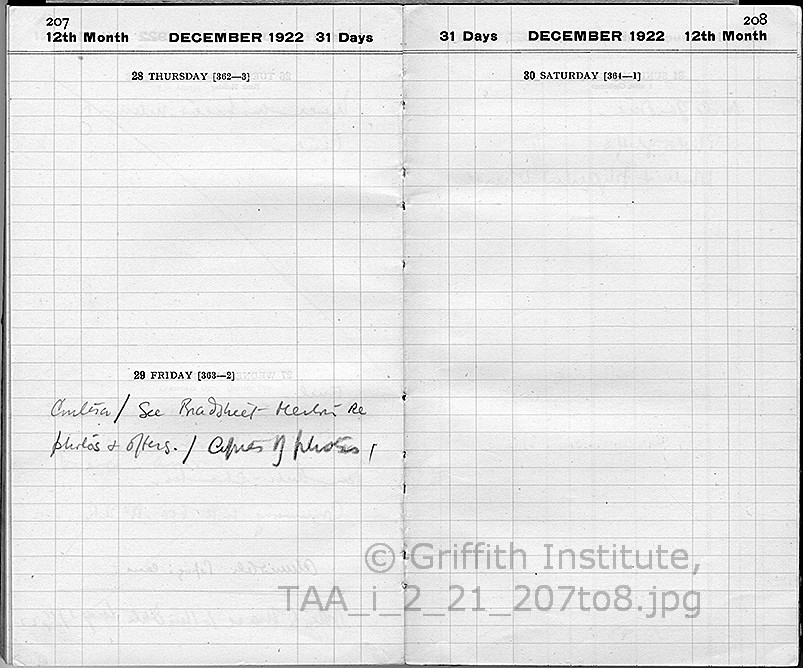 207
12th Month DECEMBER 1922 31 Days
28 THURSDAY [362—3]
29 FRIDAY [363—2]
/ See Bradstreet Merton Re
photos & offers. / Copies of photos /
208
31 Days DECEMBER 1922 12th Month
30 SATURDAY [364—1]
© Griffith Institute,
TAA_i_2_21_207to8.jpg